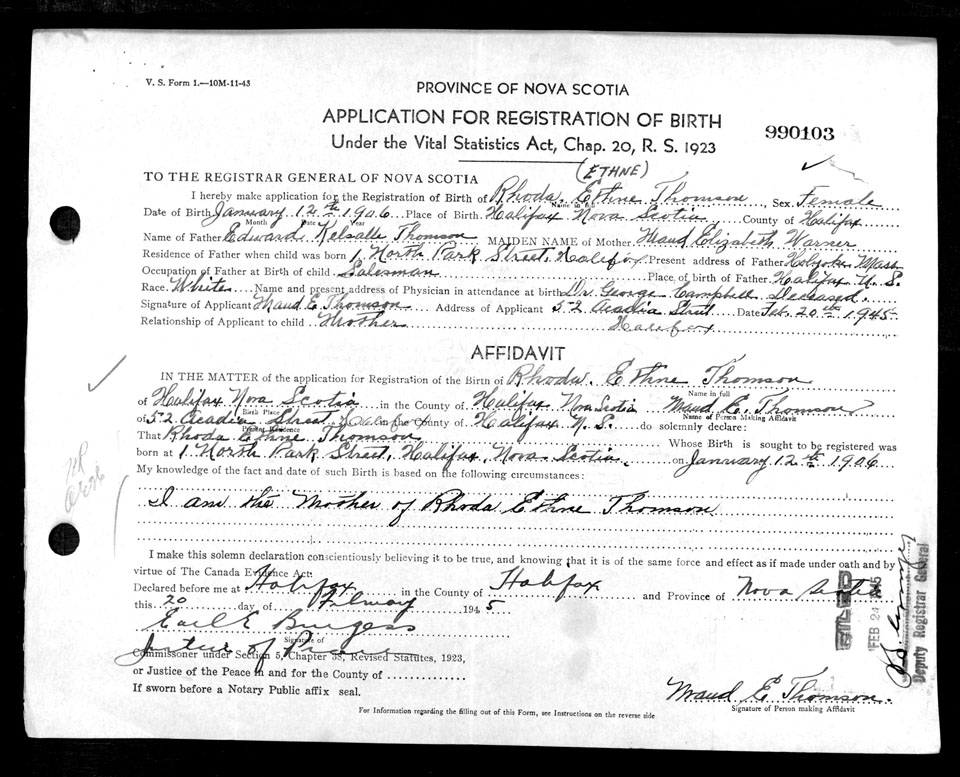 V. S. Form 1.—10M-11-43
PROVINCE OF NOVA SCOTIA
APPLICATION FOR REGISTRATION OF BIRTH
990103
Under the Vital Statistics Act, Chap. 20, R. S. 1923
(ETHNE)
TO THE REGISTRAR GENERAL OF NOVA SCOTIA
I hereby make application for the Registration of Birth of Rhoda Ethne Thomson Sex Female
Name in full
Date of Birth January 12th 1906 Place of Birth Halifax Nova Scotia, County of Halifax
Month Date Year
Name of Father Edward Kelsalle Thomson MAIDEN NAME of Mother Maud Elizabeth Warner
Residence of Father when child was born 1 North Park Street, Halifax Present address of Father Holyoke Mass
Occupation of Father at Birth of child Salesman Place of birth of Father Halifax N. S.
Race White Name and present address of Physician in attendance at birth Dr. George Campbell Deceased.
Signature of Applicant Maud E. Thomson Address of Applicant 52 Acadia Street Date Feb. 20th 1945
Relationship of Applicant to child Mother Halifax
AFFIDAVIT
IN THE MATTER of the application for Registration of the Birth of Rhoda Ethne Thomson
Name in full
of Halifax Nova Scotia in the County of Halifax Nova Scotia Maud E. Thomson
Birth Place Name of Person Making Affidavit
of 52 Acadia Street Halifax in the County of Halifax N. S. do solemnly declare:
Present Residence
That Rhoda Ethne Thomson Whose Birth is sought to be registered was
born at 1 North Park Street, Halifax, Nova Scotia, on January 12th 1906
My knowledge of the fact and date of such Birth is based on the following circumstances:
I am the Mother of Rhoda Ethne Thomson
I make this solemn declaration conscientiously believing it to be true, and knowing that it is of the same force and effect as if made under oath and by
virtue of The Canada Evidence Act:
Declared before me at Halifax in the County of Halifax and Province of Nova Scotia
this 20 day of February 1945
Earl E Burgess
Signature of
Justice of Peace
Commissioner under Section 5, Chapter 38, Revised Statutes, 1923,
or Justice of the Peace in and for the County of
If sworn before a Notary Public affix seal.
Maud E Thomson.
Signature of Person making Affidavit
For Information regarding the filling out of this Form, see Instructions on the reverse side
FILED
FEB 24 1945
Deputy Registrar General